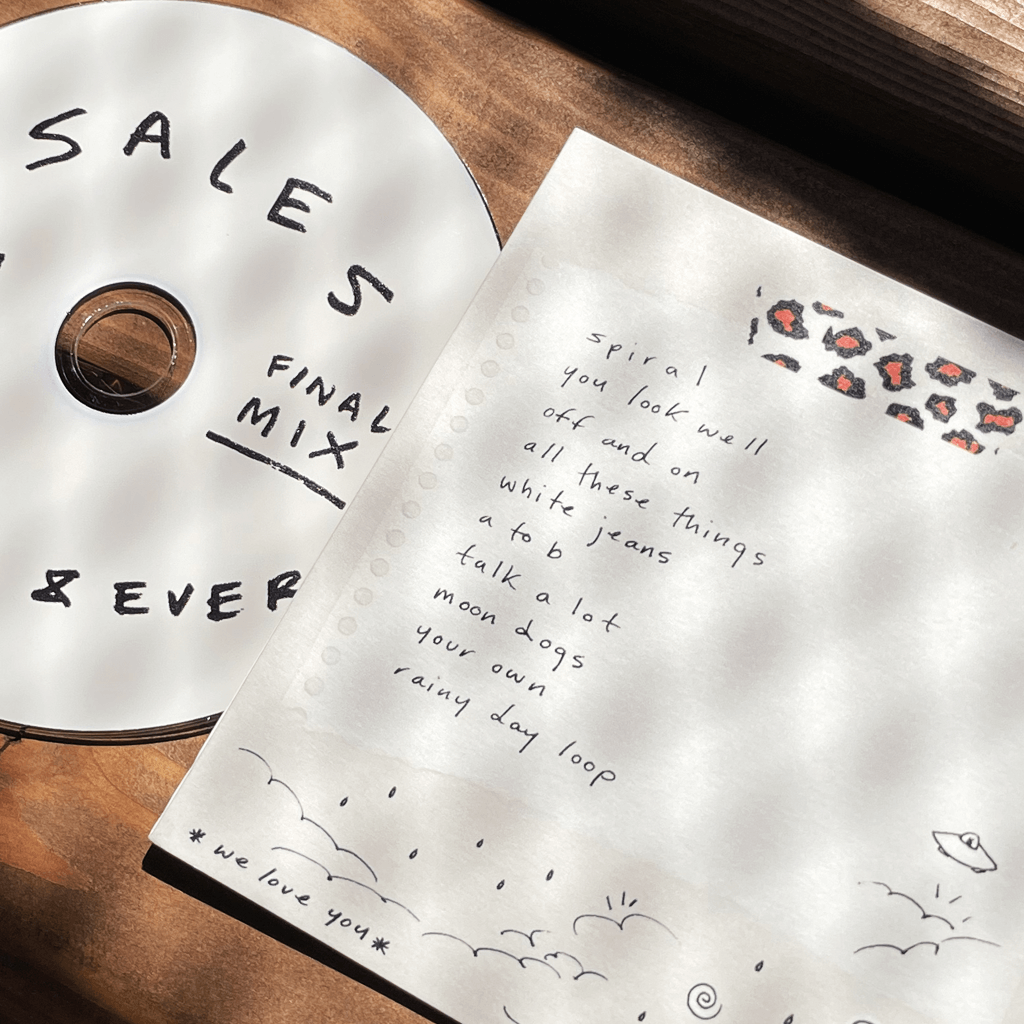 SALES
FINAL
MIX
& EVER
spiral
you look well
off and on
all these things
white jeans
a to b
talk a lot
moon dogs
your own
rainy day loop
* we love you *